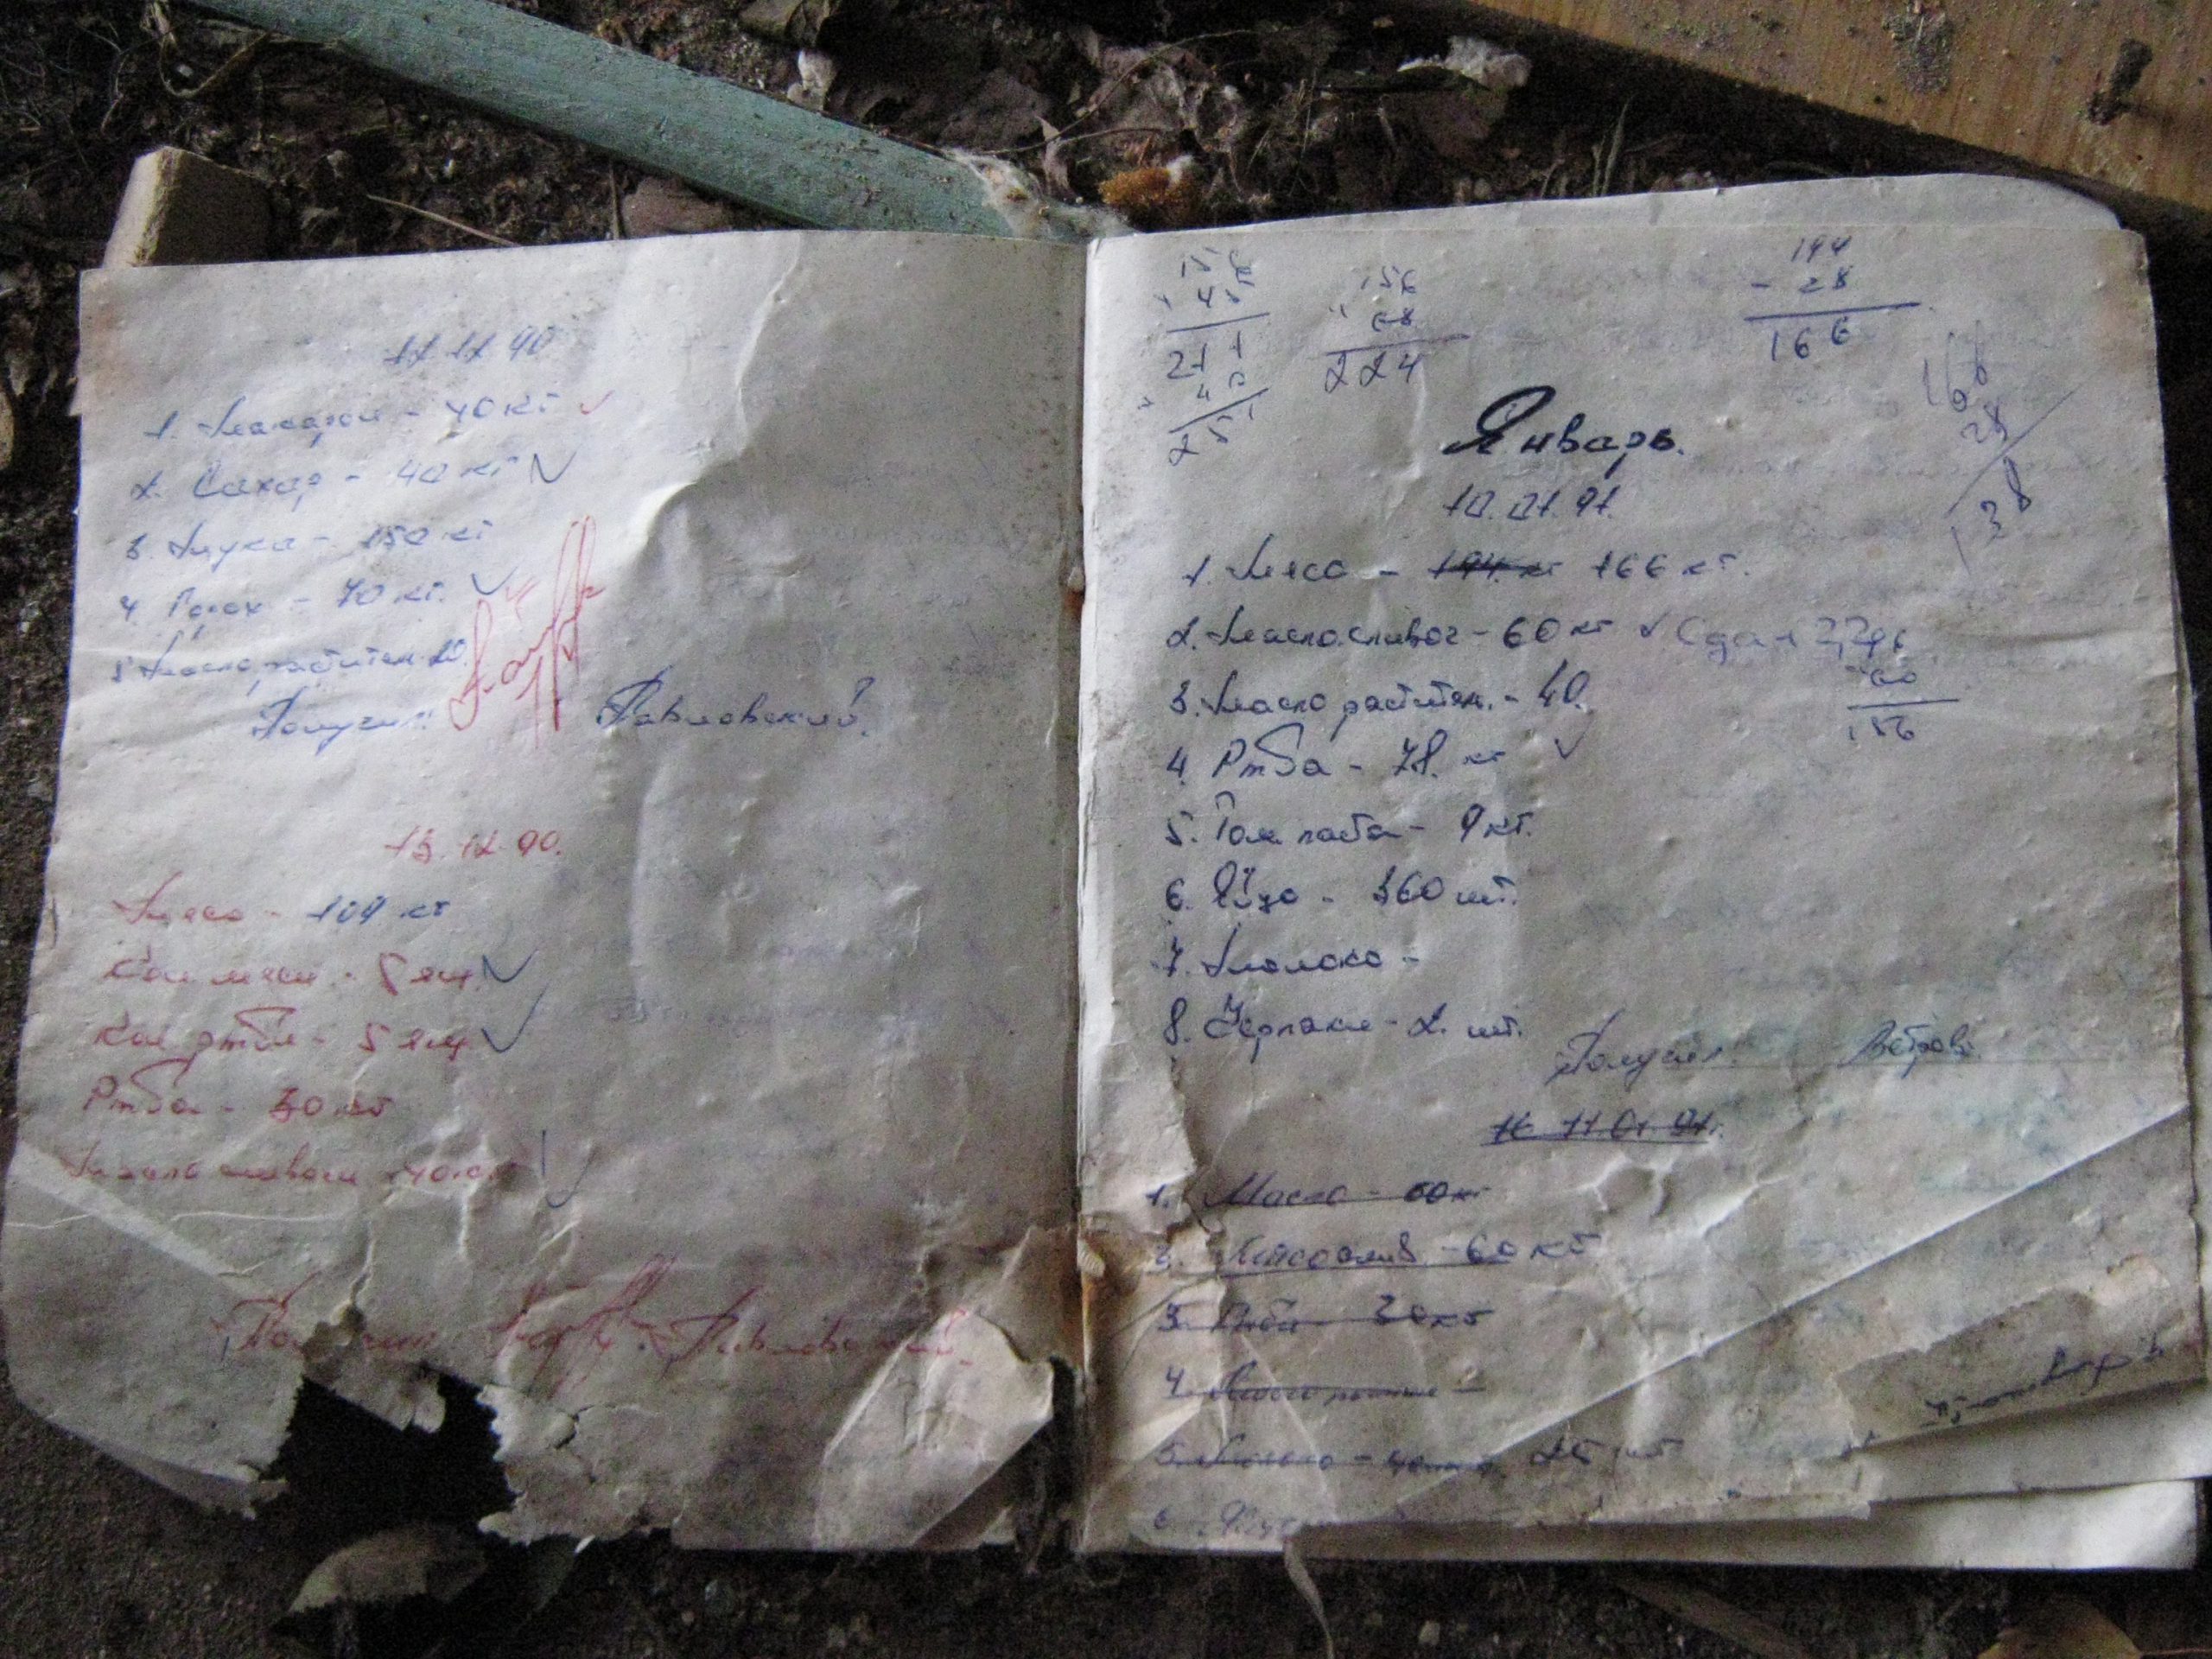 12.12.90
1. Макарон - 40 кг
2. Сахар - 40 кг
3. Мука - 150 кг
4. Горох - 70 кг.
5. Масло растител. 20.
Получил: Павловский.
13.12.90.
Мясо - 109 кг
Кон мясн. - 5 ящ.
Кон рыбн - 5 ящ.
Рыба - 30 кг
Масло сливочн 40 кг
Получил Павловский.
156
+ 45
211
+ 40
251
156
68
224
194
- 28
166
168
28
138
Январь.
10.01.91.
1. Мясо - 194 кг 166 кг.
2. Масло сливоч - 60 кг Сдал
60
156
3. Масло растител. - 40.
4. Рыба - 78. кг
5. Том. паста - 9 кг.
6. Яйцо - 360 шт.
7. Молоко -
8. Черпаки - 2. шт.
Получил. Ветров
11.01.91г.
1. Масло - 60 кг
2. слив - 60 кг
3. Рыба - 30 кг
4. Масло
5. Молоко - 25 шт
6.